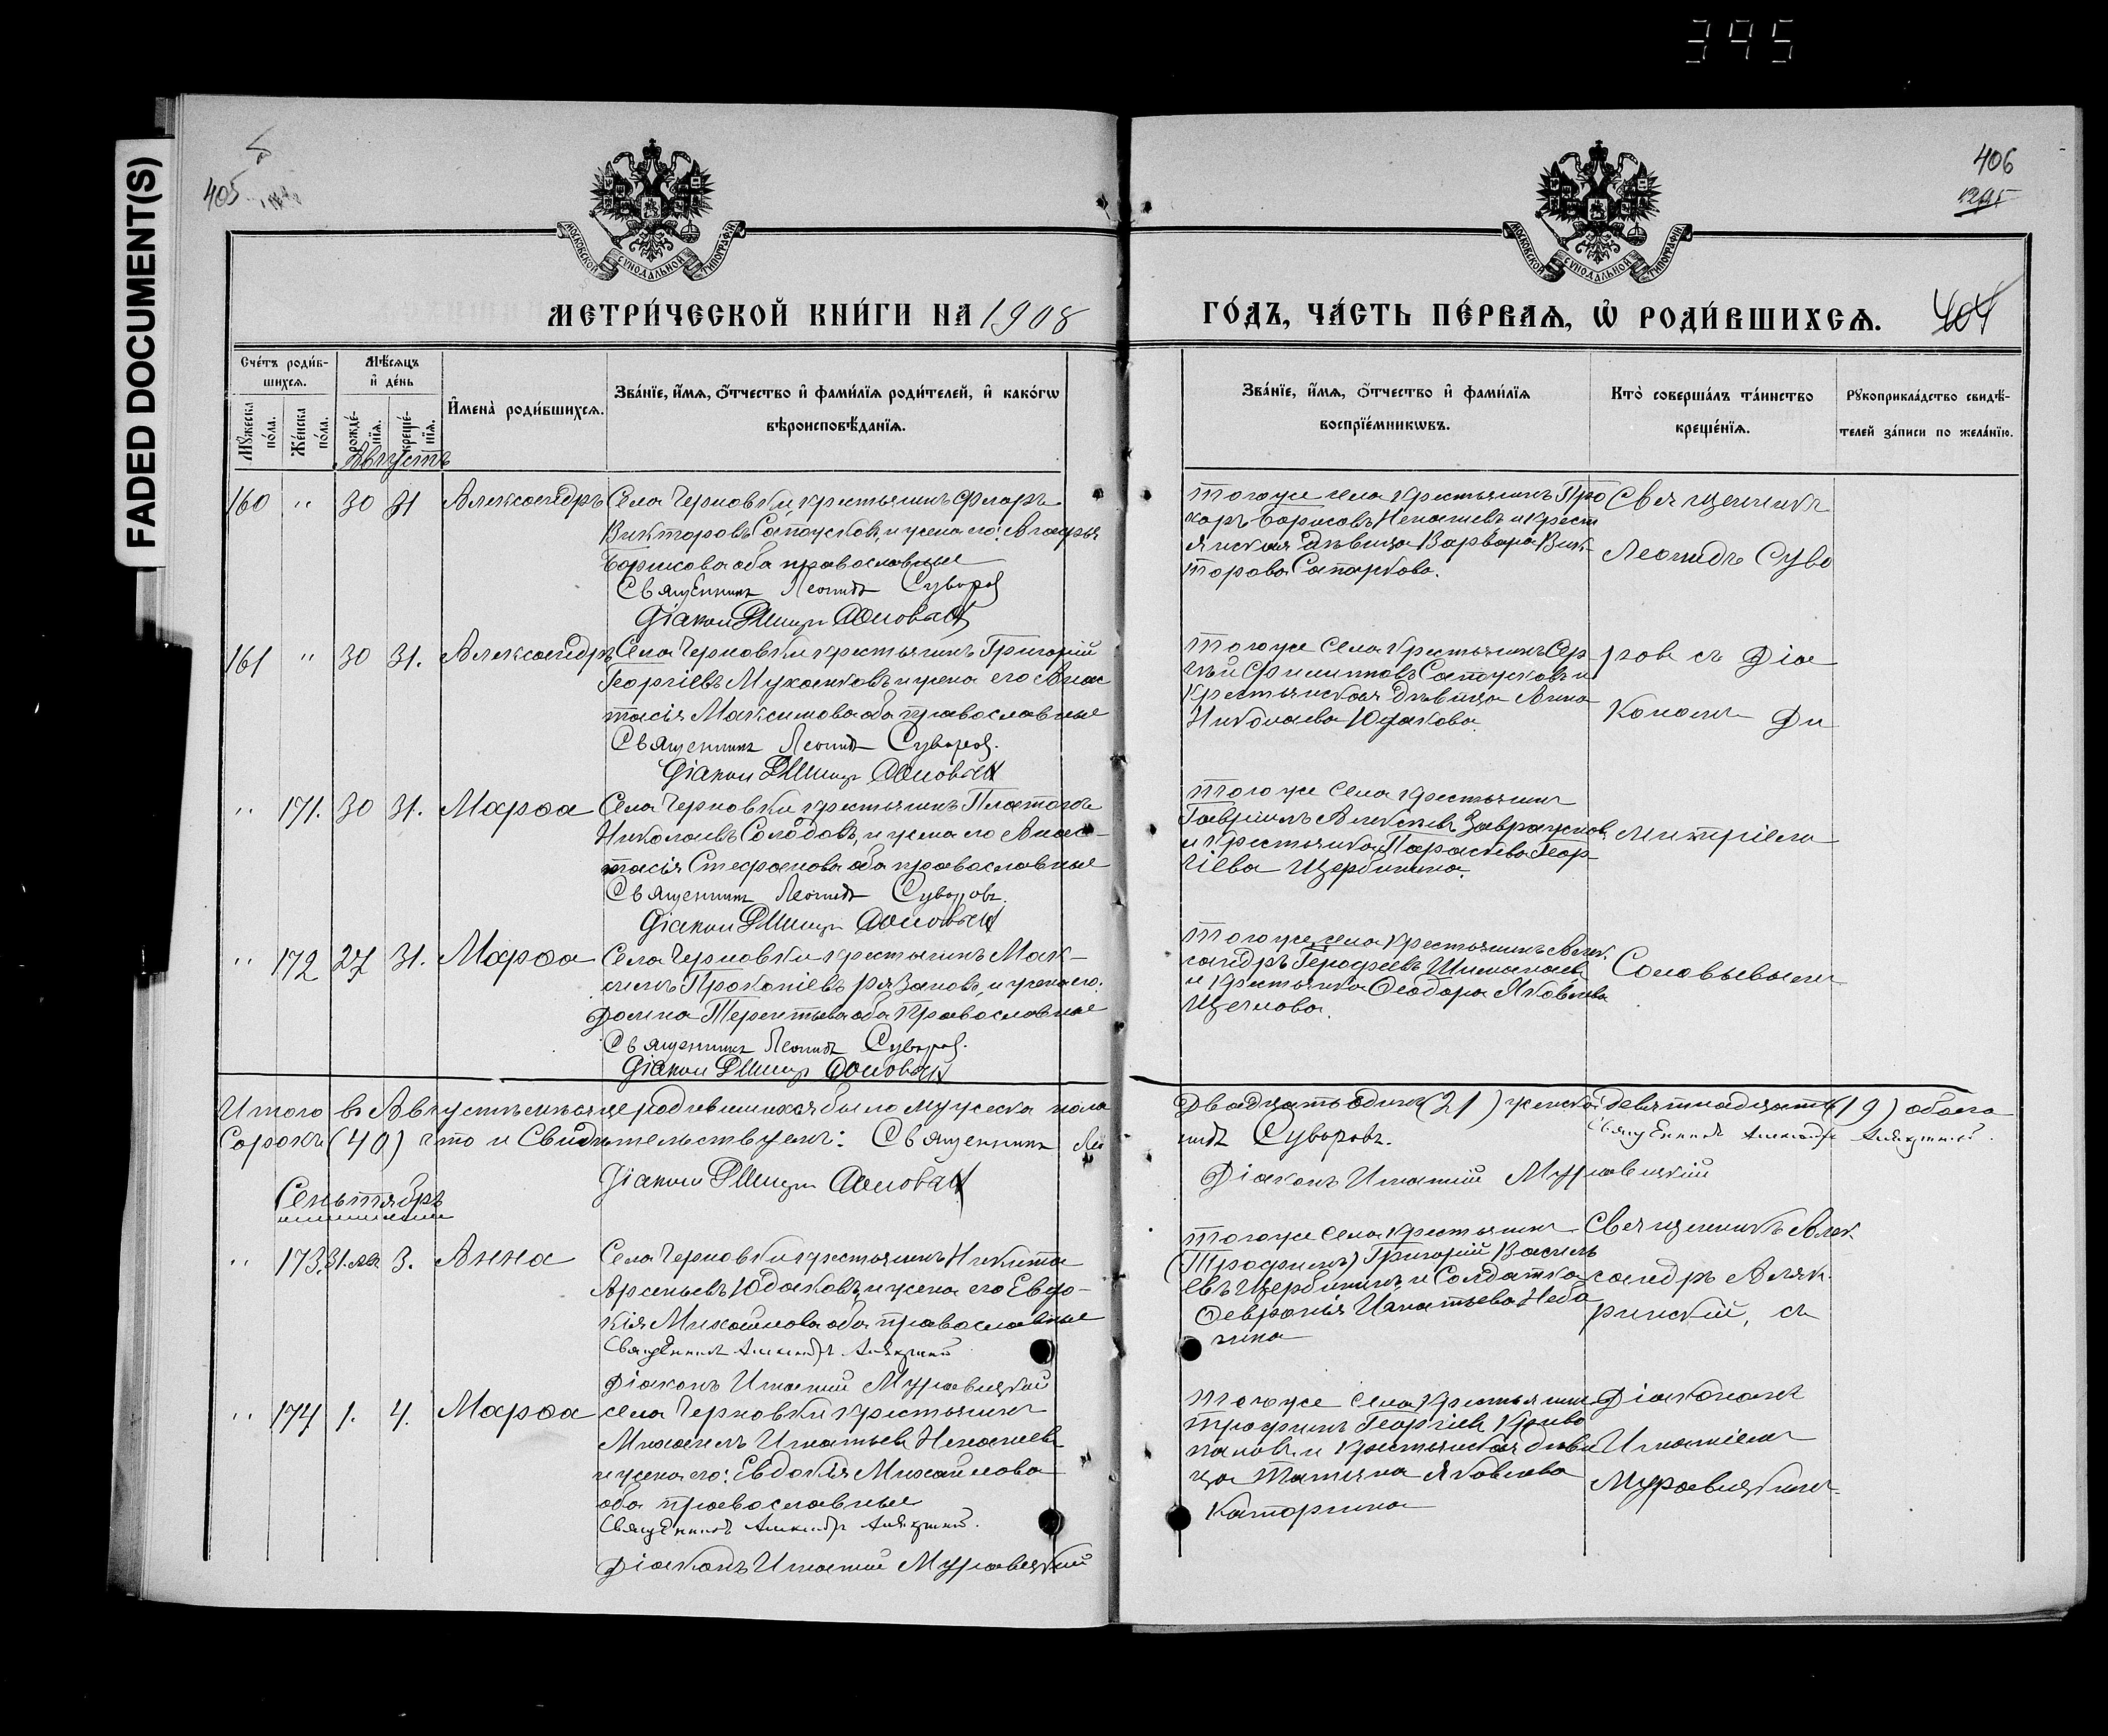 395
FADED DOCUMENT(S)
405
406
МОСКОВСКОЙ СУНОДАЛЬНОЙ ТИПОГРАФІИ
МОСКОВСКОЙ СУНОДАЛЬНОЙ ТИПОГРАФІИ
МЕТРИ́ЧЕСКОЙ КНИ́ГИ НА 1908
ГО́ДЪ, ЧА́СТЬ ПЕ́РВАѦ, Ѡ҆ РОДИ́ВШИХСѦ.
404
Сче́тъ роди́в-
шихсѧ.
Мѣ́сѧцъ
и҆ де́нь
Мꙋ́жеска
по́ла.
Же́нска
по́ла.
рожде́-
нїѧ.
креще́-
нїѧ.
И҆мена̀ роди́вшихсѧ.
Зва́нїе, и҆́мѧ, ѻ҆́тчество и҆ фами́лїѧ роди́телей, и҆ како́гѡ
вѣроисповѣ́данїѧ.
Зва́нїе, и҆́мѧ, ѻ҆́тчество и҆ фами́лїѧ
воспрїе́мникѡвъ.
Кто̀ соверша́лъ та́инство
креще́нїѧ.
Рꙋкоприкла́дство свидѣ́-
телей за́писи по жела́нїю.
Августъ
160 " 30 31 Александръ
Села Черновки крестьянинъ Флоръ
Викторовъ Сапожковъ и жена его: Агафья
Борисова оба православные
Священникъ Леонидъ Суворовъ
Діаконъ Дмитрій Соловьевъ
тогоже села крестьянинъ Про
хоръ Борисовъ Ненашевъ и крест
янская дѣвица Варвара Вик-
торова Сапожкова.
Священникъ
Леонидъ Суво
161 " 30 31. Александръ
Села Черновки крестьянинъ Григорій
Георгіевъ Муханковъ и жена его Анас
тасія Максимова оба православные
Священникъ Леонидъ Суворовъ.
Діаконъ Дмитрій Соловьевъ
тогоже села крестьянинъ Сер-
гѣй Филиповъ Сапожковъ и
крестьянская дѣвица Анна
Николаева Юдакова.
ровъ съ Діа
кономъ Ди
" 171. 30 31. Марѳа
Села Черновки крестьянинъ Платонъ
Николаевъ Солодовъ, и жена его Анас-
тасія Стефанова оба православные
Священникъ Леонидъ Суворовъ.
Діаконъ Дмитрій Соловьевъ
тогоже села крестьянинъ
Гавріилъ Алексѣевъ Завражновъ
и крестьянка Параскева Геор-
гіева Щербинина.
митріемъ
" 172 27 31. Марѳа
Села Черновки крестьянинъ Мак-
симъ Прокопіевъ Рязановъ, и жена его:
Домна Терентьева оба православные
Священникъ Леонидъ Суворовъ.
Діаконъ Дмитрій Соловьевъ
тогоже села крестьянинъ Алек
сандръ Герофеевъ
и крестьянка Ѳеодора Яковлева
Щеглова.
Соловьевымъ
Итого въ Августѣ мѣсяцѣ родившихся было мужеска пола
Двадцать одинъ (21) женска девятнадцать (19) обоего
Сорокъ (40) что и Свидѣтельствуемъ: Священникъ Лео
нидъ Суворовъ.
Священникъ Александръ Алякринскій.
Діаконъ Дмитрій Соловьевъ
Діаконъ Игнатій Муравицкій
Сеньтябрь
" 173. 31. авг. 3. Анна
Села Черновки крестьянинъ Никита
Арсеньевъ Юдаковъ, и жена его Евдо-
кія Михайлова оба православные
Священникъ Александръ Алякринскій
Діаконъ Игнатій Муравицкій
тогоже села крестьянинъ
(Трофимъ) Григорій Василь
евъ Щербининъ и Солдатка
Ѳевронія Игнатьева Неба
кина
Священникъ Алек
сандръ Аляк-
ринскій, съ
" 174 1. 4. Марѳа
села Черновки крестьянинъ
Михаилъ Игнатьевъ Ненашевъ
и жена его: Евдокія Михайлова
оба православные
Священникъ Александръ Алякринскій.
Діаконъ Игнатій Муравицкій
тогоже села крестьянинъ
Трофимъ Георгіевъ Криво
пановъ и крестьянская дѣви
ца Татьяна Яковлева
Каторгина
Діакономъ
Игнатіемъ
Муравицкимъ